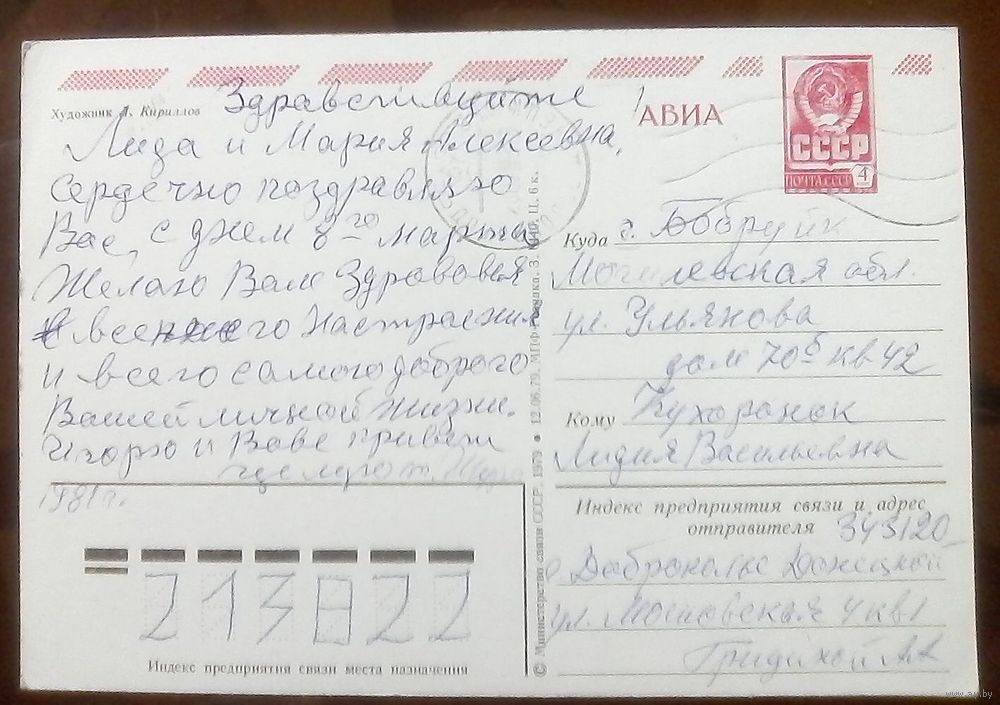 Художник А. Кириллов
Здравствуйте
Лида и Мария Алексеевна,
Сердечно поздравляю
Вас, с днем 8го марта
Желаю Вам Здоровья
весеннего настроения
и всего самого доброго
Вашей личной жизни.
Игорю и Вове привет
целую т.
1981г.
АВИА
СССР
ПОЧТА СССР 4
Куда г. Бобруйск
Могилевская обл.
ул. Ульянова
дом 70б кв 42
Кому Кухаронок
Лидия Васильевна
Индекс предприятия связи и адрес
отправителя 343120
Доброполье Донецкой
ул. Московская 4 кв1
Гридиной АА
213822
Индекс предприятия связи места назначения
© Министерство связи СССР. 1979 • 12.06.79. МПФ Гознака. З. Ц. 6 к.
www.ay.by